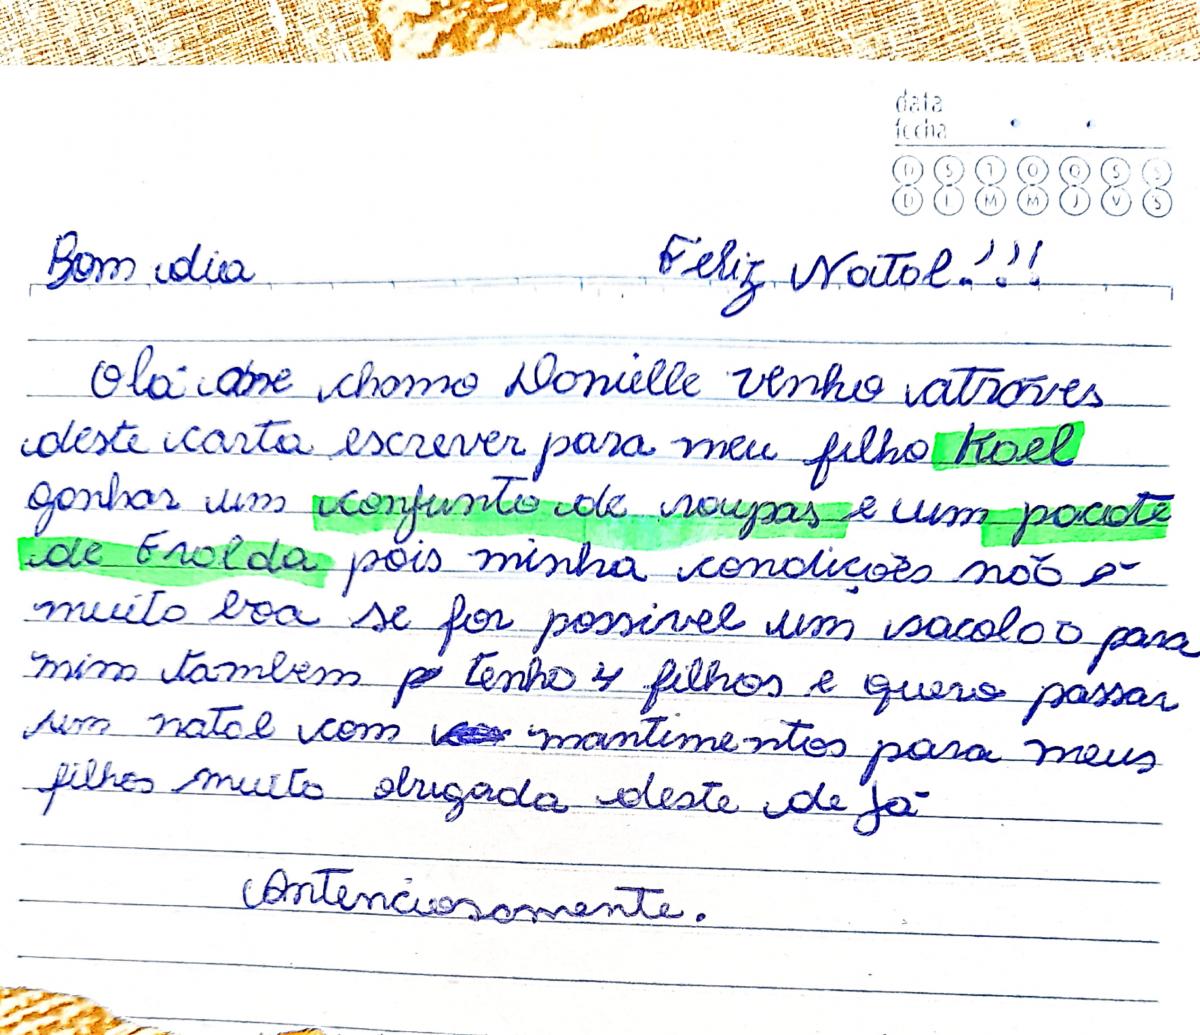 data
fecha
D S T Q Q S S
D L M M J V S
Bom dia Feliz Natal!!!
Olá me chamo Danielle venho atraves
deste carta escrever para meu filho Kael
ganhar um conjunto de roupas e um pacote
de Fralda pois minha condições não é
muito boa se for possivel um sacolão para
mim tambem p tenho 4 filhos e quero passar
um natal com mantimentos para meus
filhos muito obrigada deste de já
Antenciosamente.